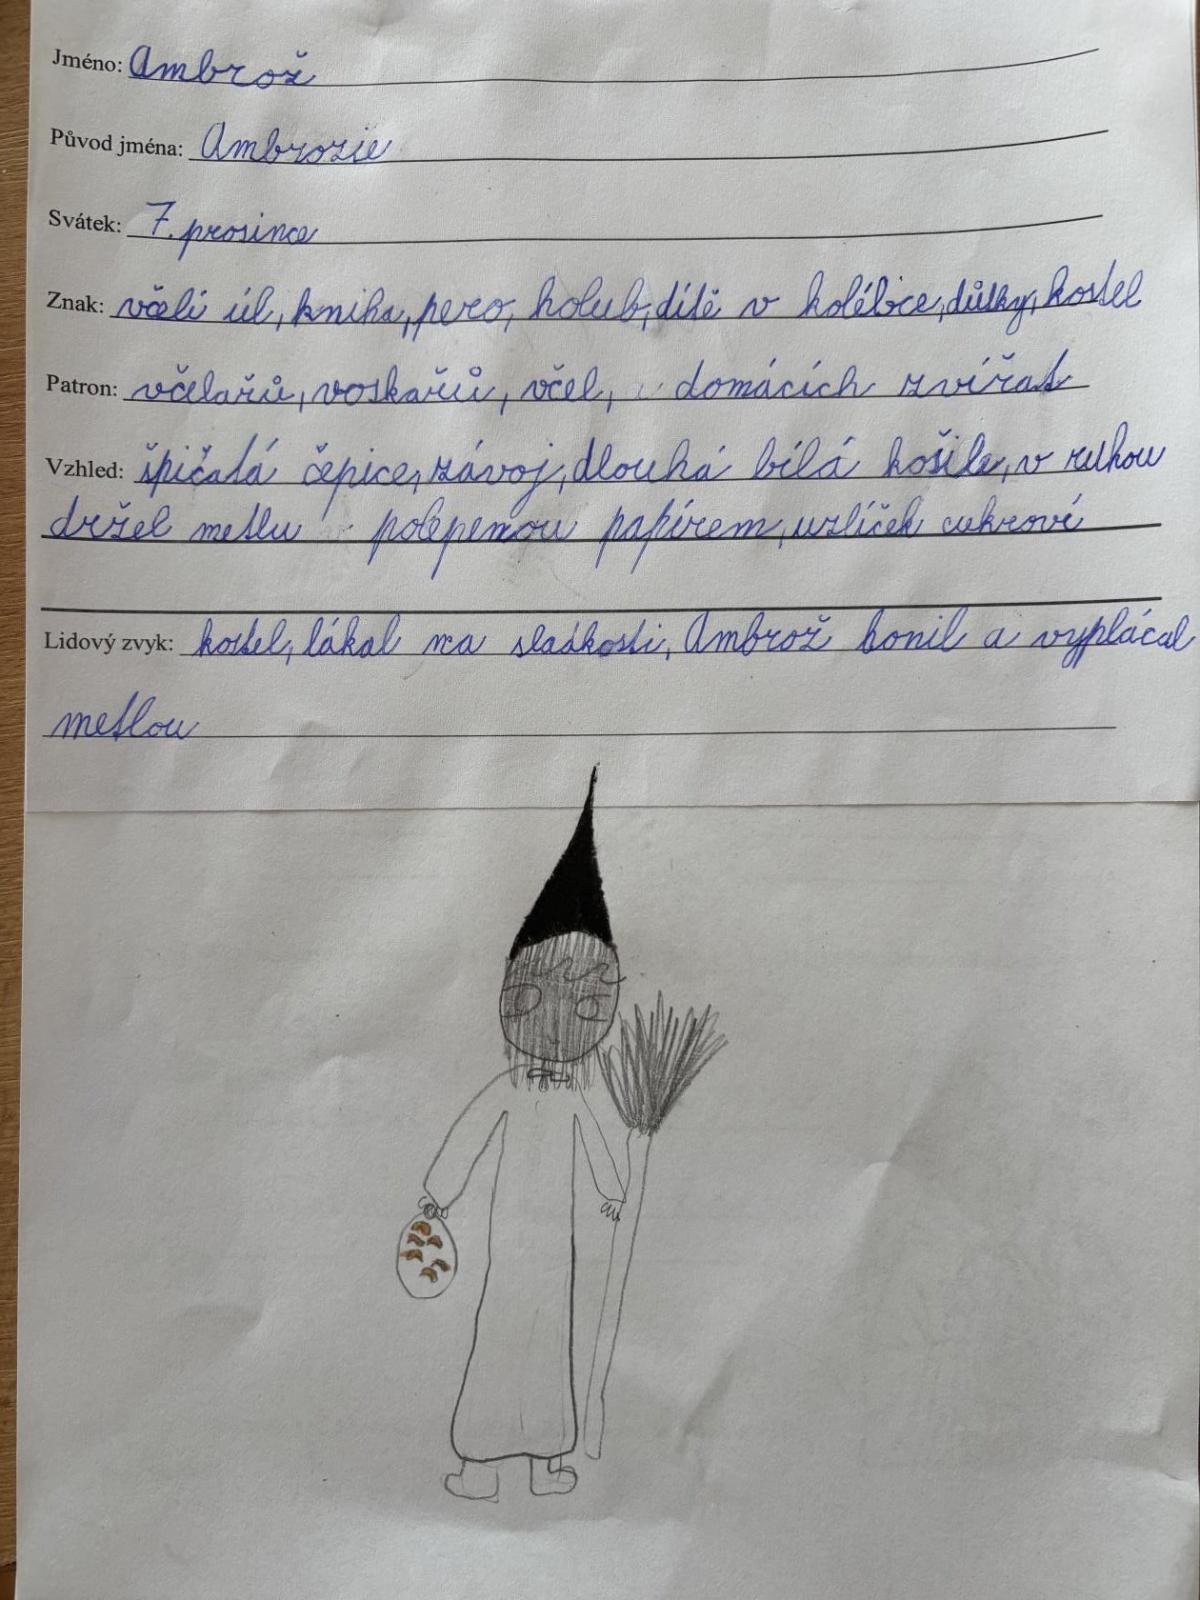 Jméno: Ambrož
Původ jména: Ambrozie
Svátek: 7. prosince
Znak: včelí úl, kniha, pero, holub, dítě v kolébce, důtky, kostel
Patron: včelařů, voskařů, včel, domácích zvířat
Vzhled: špičatá čepice, závoj, dlouhá bílá košile, v rukou
držel metlu polepenou papírem, uzlíček cukroví
Lidový zvyk: kostel, lákal na sladkosti, Ambrož honil a vyplácal
metlou